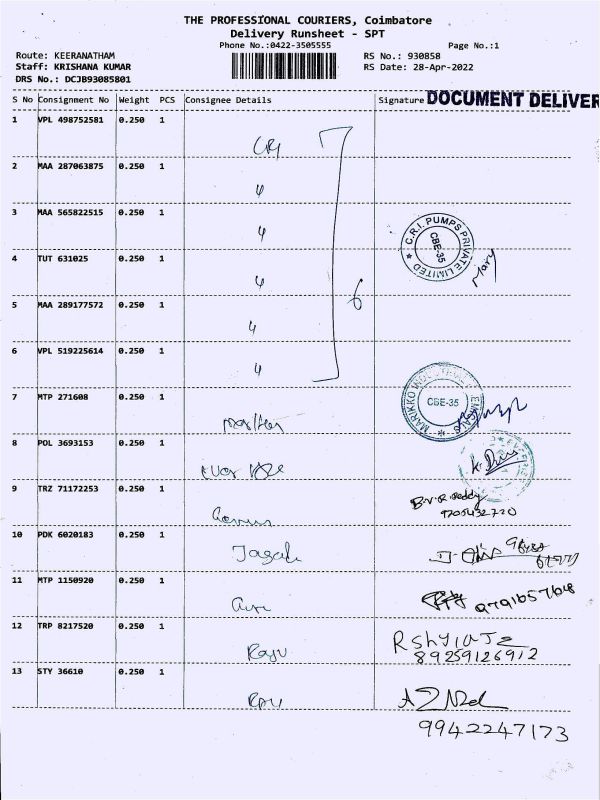 THE PROFESSIONAL COURIERS, Coimbatore
Delivery Runsheet - SPT
Phone No.:0422-3505555
Page No.:1
Route: KEERANATHAM
RS No.: 930858
Staff: KRISHANA KUMAR
RS Date: 28-Apr-2022
DRS No.: DCJB93085801
S No Consignment No Weight PCS Consignee Details Signature DOCUMENT DELIVER
1 VPL 498752581 0.250 1 CRI
2 MAA 287063875 0.250 1 "
3 MAA 565822515 0.250 1 "
C.R.I. PUMPS PRIVATE LIMITED CBE-35
Mary
4 TUT 631025 0.250 1 "
6
5 MAA 289177572 0.250 1 "
6 VPL 519225614 0.250 1 "
7 MTP 271608 0.250 1
MARIKKO CBE-35
8 POL 3693153 0.250 1
9 TRZ 71172253 0.250 1
B.V.R. Reddy
10 PDK 6020183 0.250 1
11 MTP 1150920 0.250 1
9791657648
12 TRP 8217520 0.250 1 Raju
89259126912
13 STY 36610 0.250 1
9942247173